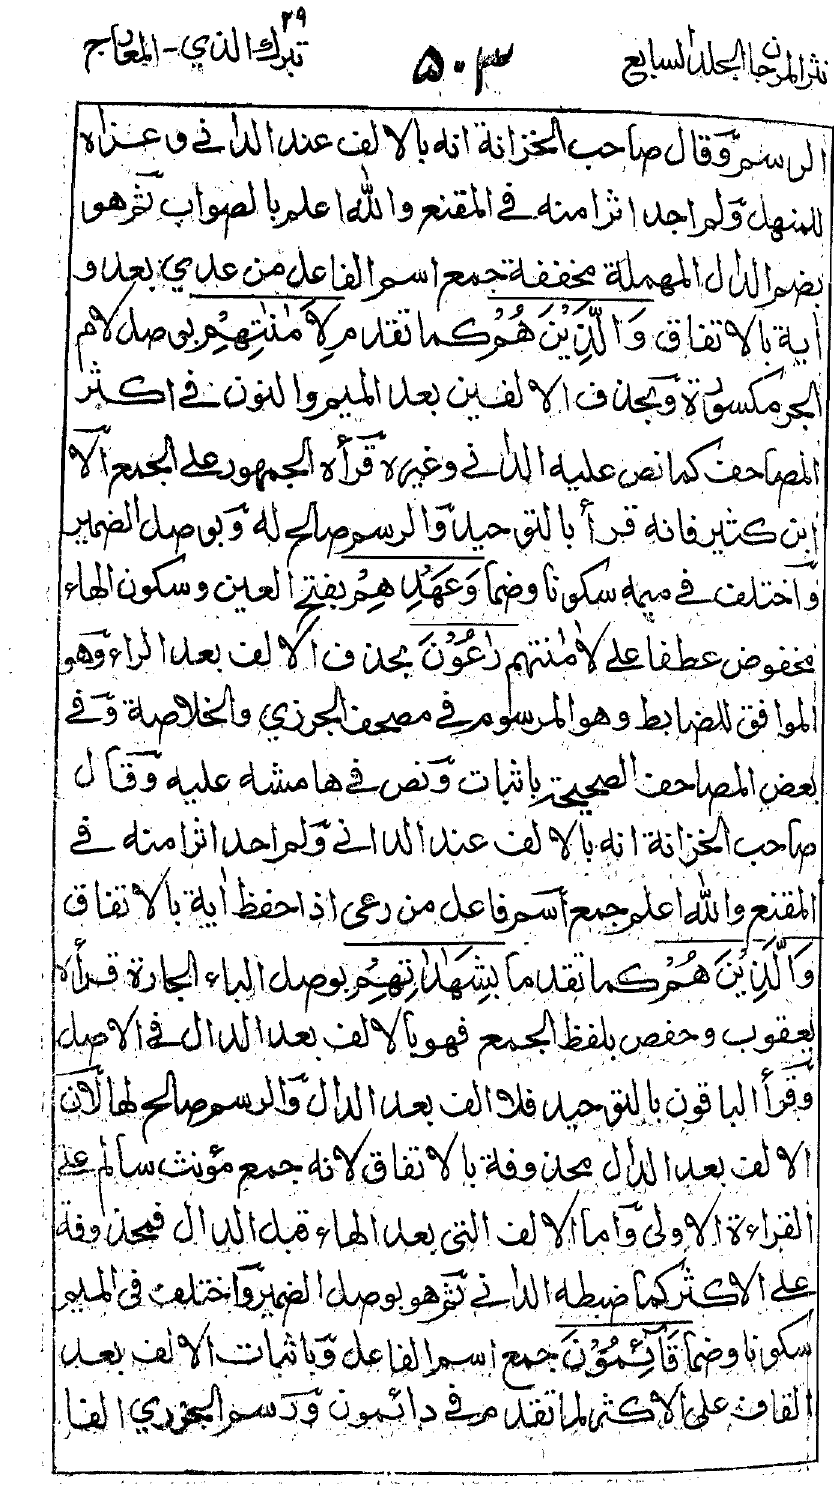 نثر المرجان الجلد السابع
٥٠٣
تبرك الذي ٢٩ - المعارج
الرسم وقال صاحب الخزانة انه بالالف عند الداني وعزاه
للمنهل ولم اجد اثرا منه في المقنع والله اعلم بالصواب ثم هو
بضم الدال المهملة مخففة جمع اسم الفاعل من عدي يعدو
أية بالاتفاق وَالَّذِيْنَ هُمْ كما تقدم لِأَمٰنٰتِهِمْ بوصل لام
الجر مكسورة وبحذف الالفين بعد الميم والنون في اكثر
المصاحف كما نص عليه الداني وغيره قرأه الجمهور على الجمع الا
ابن كثير فانه قرأ بالتوحيد والرسم صالح له وبوصل الضمير
واختلف في ميمه سكونا وضما وَعَهْدِهِمْ بفتح العين وسكون الهاء
مخفوض عطفا على لأمنتهم رٰعُوْنَ بحذف الالف بعد الراء وهو
الموافق للضابط وهو المرسوم في مصحف الجزري والخلاصة وفي
بعض المصاحف الصحيحة باثبات ونص في هامشه عليه وقال
صاحب الخزانة انه بالالف عند الداني ولم اجد اثرا منه في
المقنع والله اعلم جمع اسم فاعل من رعى اذا حفظ أية بالاتفاق
وَالَّذِيْنَ هُمْ كما تقدم بِشَهٰدٰتِهِمْ بوصل الباء الجارة قرأه
يعقوب وحفص بلفظ الجمع فهو بالالف بعد الدال في الاصل
وقرأ الباقون بالتوحيد فلا الف بعد الدال والرسم صالح لها لان
الالف بعد الدال محذوفة بالاتفاق لانه جمع مؤنث سالم على
القراءة الاولى واما الالف التي بعد الهاء قبل الدال فمحذوفة
على الاكثر كما ضبطه الداني ثم هو بوصل الضمير واختلف في الميم
سكونا وضما قَائِمُوْنَ جمع اسم الفاعل وباثبات الالف بعد
القاف على الاكثر لما تقدم في دائمون ورسم الجزري الفا